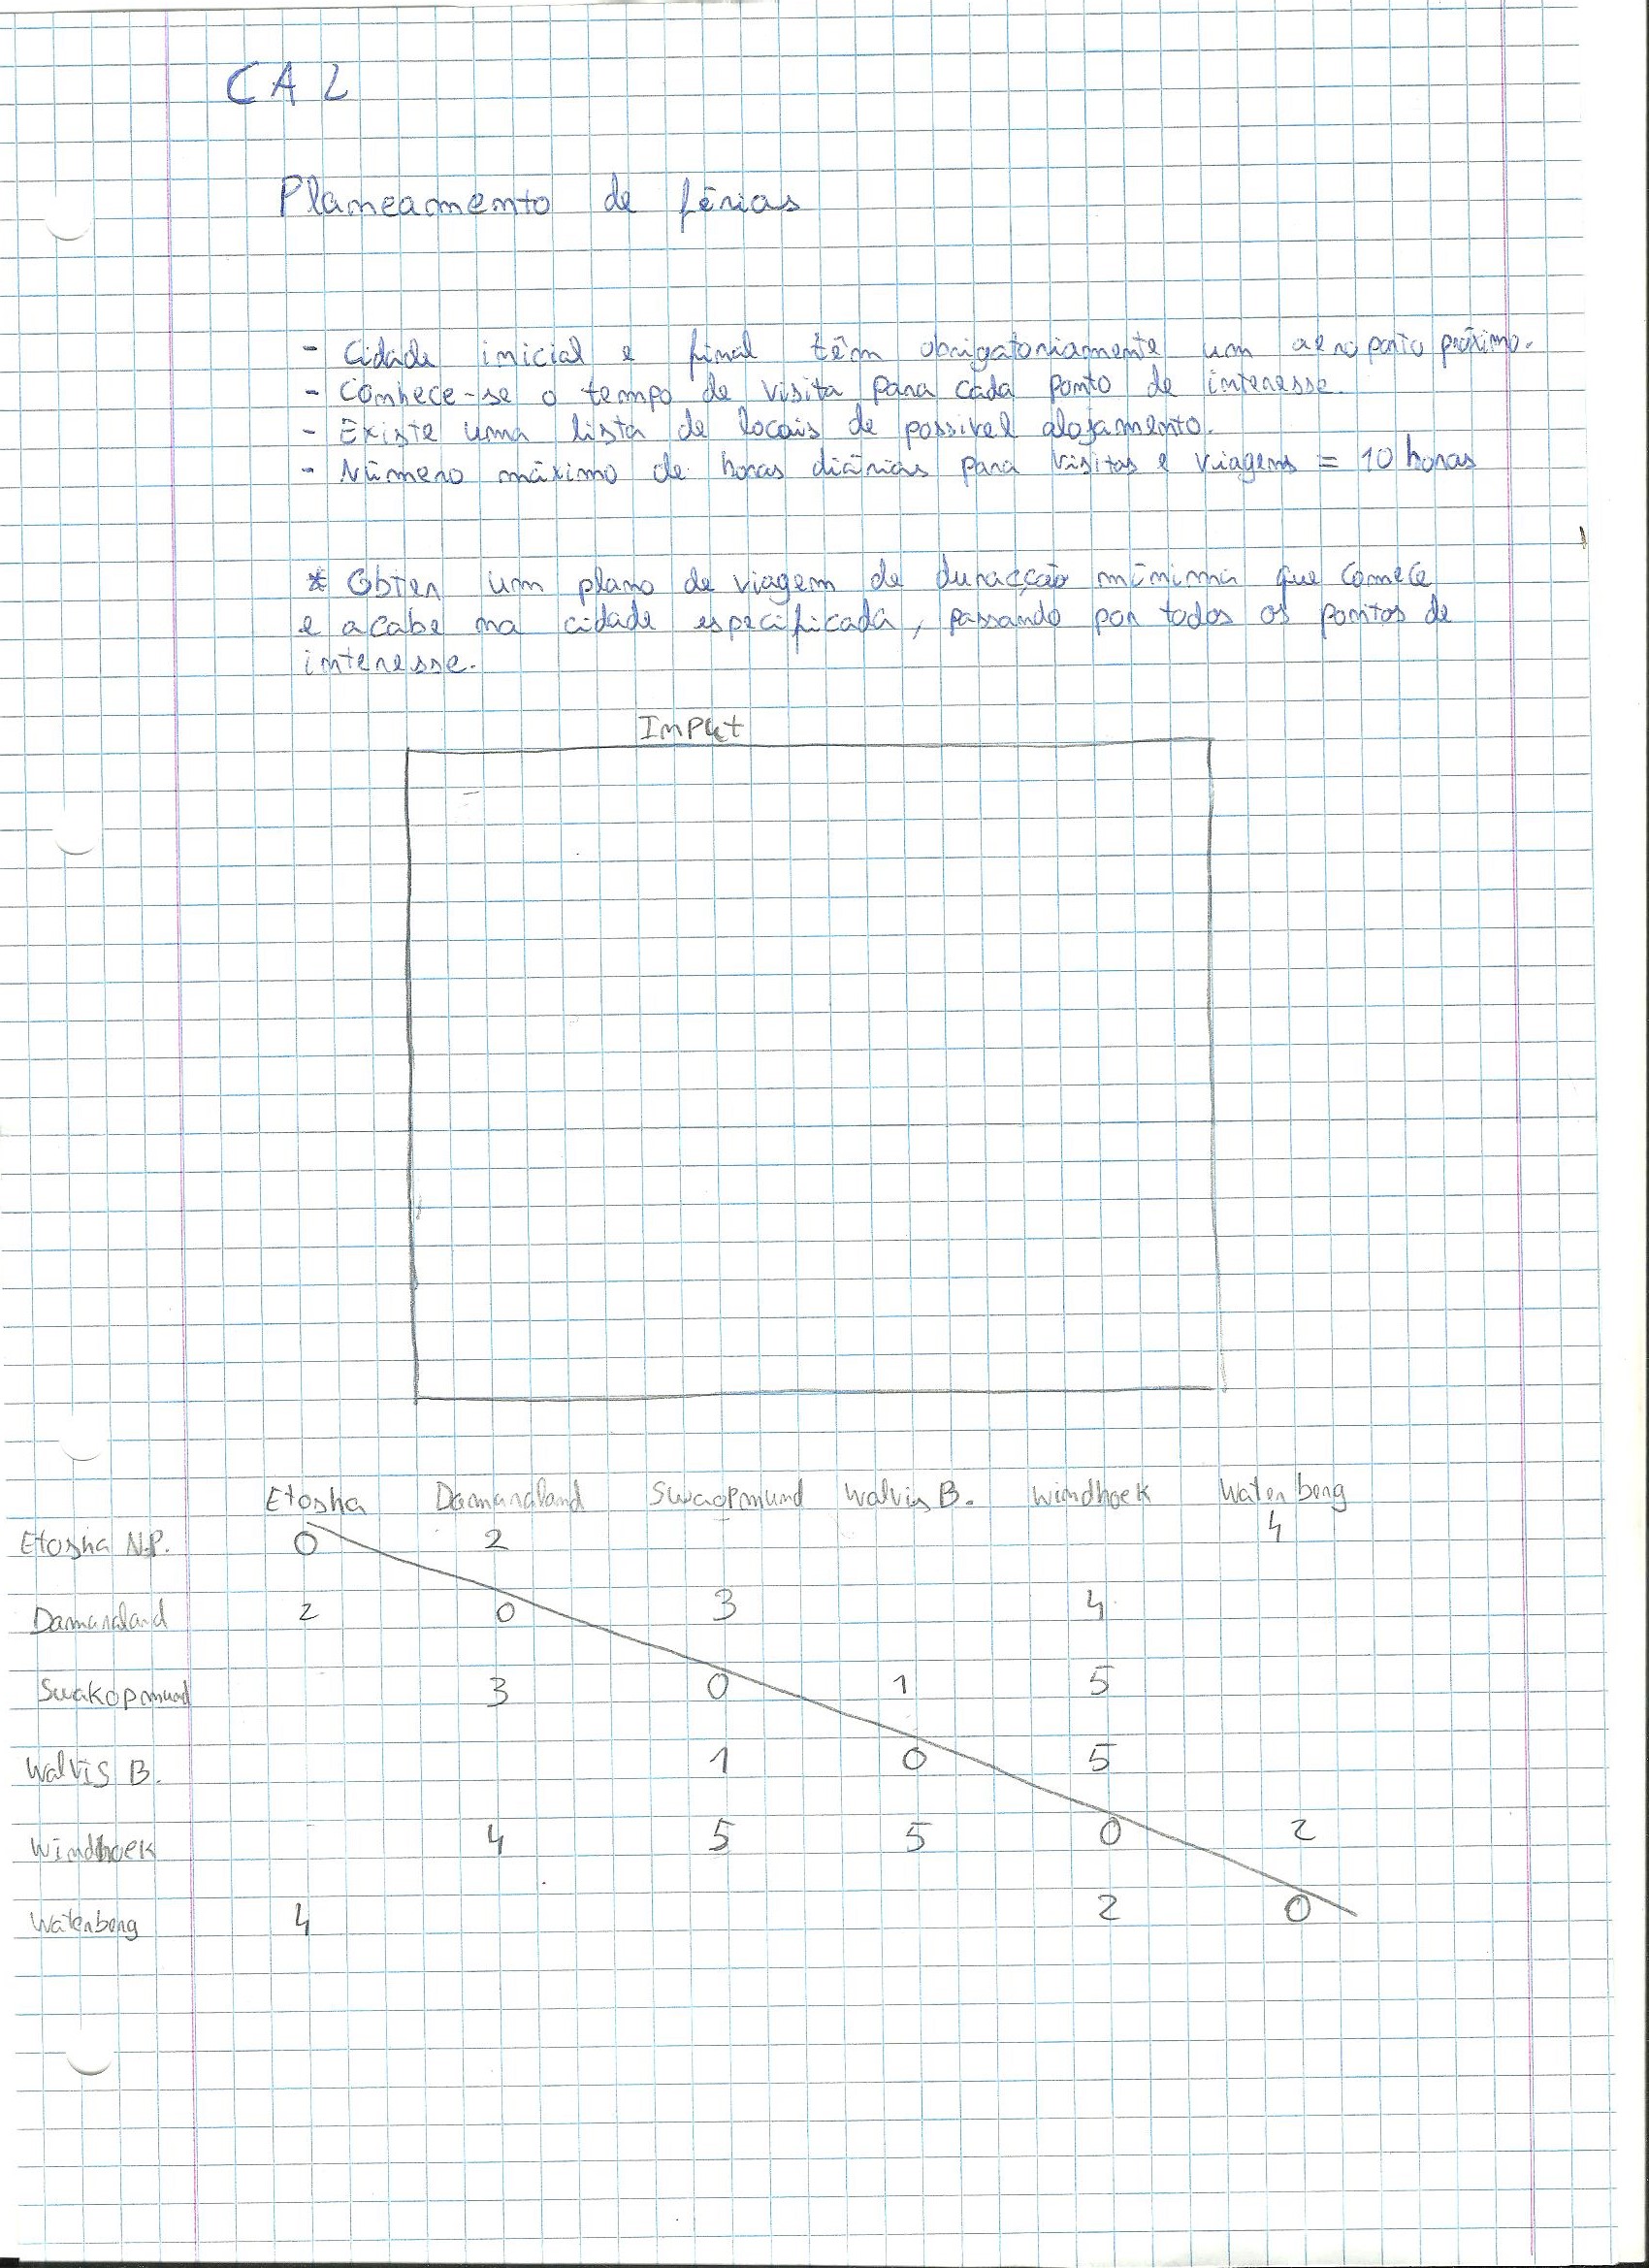 CAL
Planeamento de férias
- Cidade inicial e final têm obrigatoriamente um aeroporto próximo.
- Conhece-se o tempo de visita para cada ponto de interesse.
- Existe uma lista de locais de possivel alojamento.
- Número máximo de horas diárias para visitas e viagens = 10 horas
* Obter um plano de viagem de duracção mínima que comece
e acabe na cidade especificada, passando por todos os pontos de
interesse.
Input
Etosha Damaraland Swaopmund Walvis B. Windhoek Waterberg
Etosha N.P. 0 2 4
Damaraland 2 0 3 4
Swakopmund 3 0 1 5
Walvis B. 1 0 5
Windhoek 4 5 5 0 2
Waterberg 4 2 0